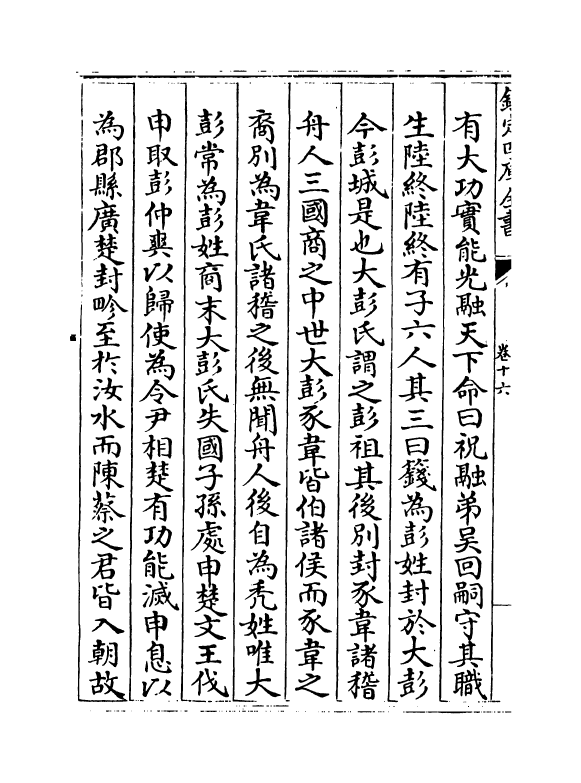 欽定四庫全書
卷十六
有大功實能光融天下命曰祝融弟吴回嗣守其職
生陸終陸終有子六人其三曰籛為彭姓封於大彭
今彭城是也大彭氏謂之彭祖其後別封豕韋諸稽
舟人三國商之中世大彭豕韋皆伯諸侯而豕韋之
裔別為韋氏諸稽之後無聞舟人後自為禿姓唯大
彭常為彭姓商末大彭氏失國子孫處申楚文王伐
申取彭仲爽以歸使為令尹相楚有功能滅申息以
為郡縣廣楚封畛至於汝水而陳蔡之君皆入朝故